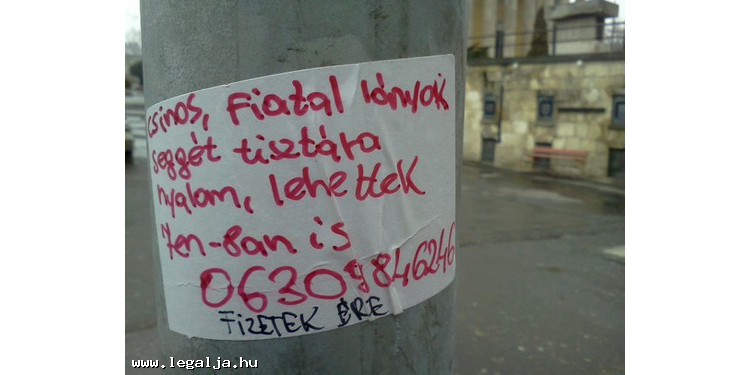 csinos, Fiatal lányok
seggét tisztára
nyalom, lehettek
7en-ban is
06309846246
FIZETEK ÉRE
www.legalja.hu